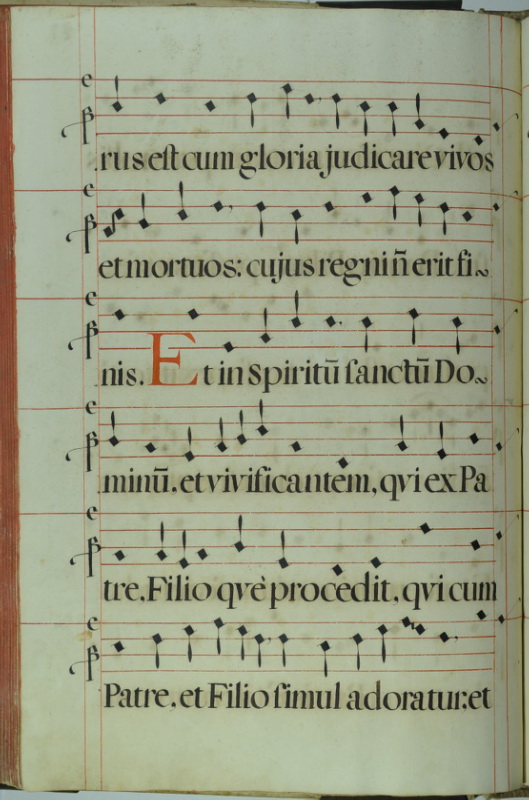 rus est cum gloria judicare vivos
et mortuos: cujus regni ñ erit fi~
nis. Et in Spiritū sanctū Do~
minū, et vivificantem, qvi ex Pa
tre, Filio qvè procedit, qvi cum
Patre, et Filio simul adoratur: et